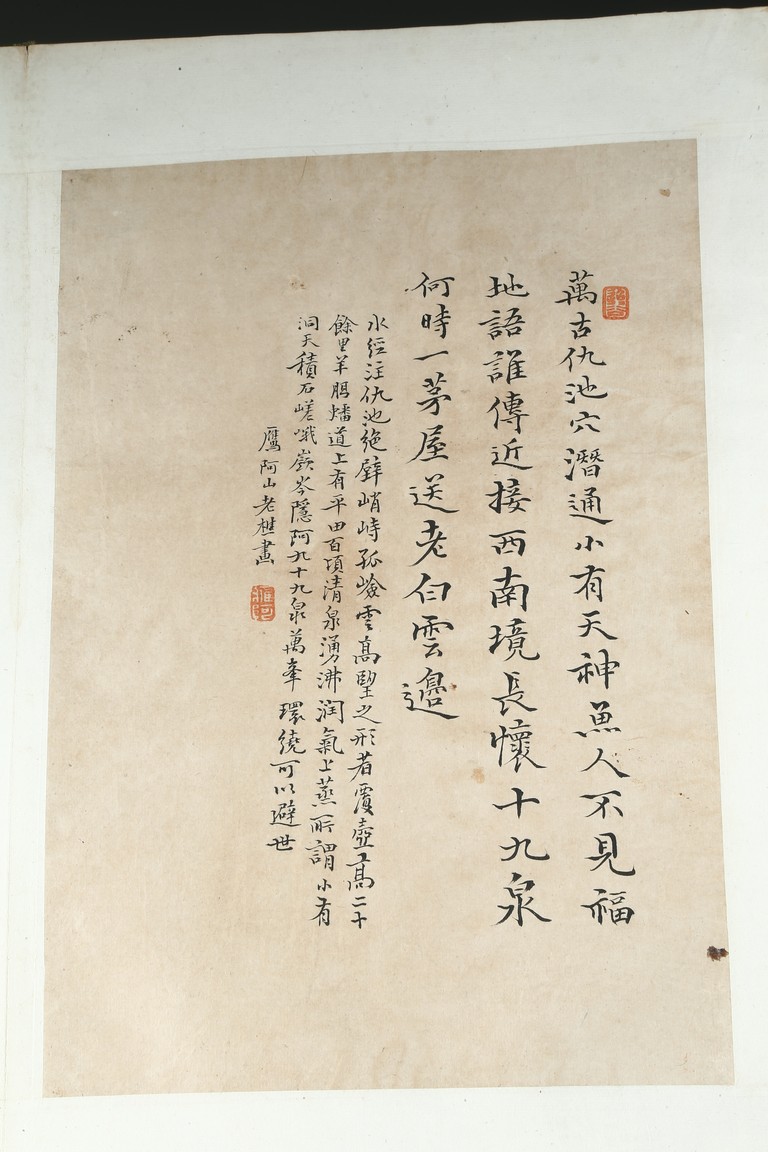 萬古仇池穴潛通小有天神魚人不見福
地語誰傳近接西南境長懷十九泉
何時一茅屋送老白雲邉
水經注仇池絶壁峭峙孤嶮雲高望之形若覆壺高二十
餘里羊腸蟠道上有平田百頃清泉湧沸潤氣上蒸所謂小有
洞天積石嵯峨嶔岑隱阿九十九泉萬峯環繞可以避世
鷹阿山老樵畫
鷹阿